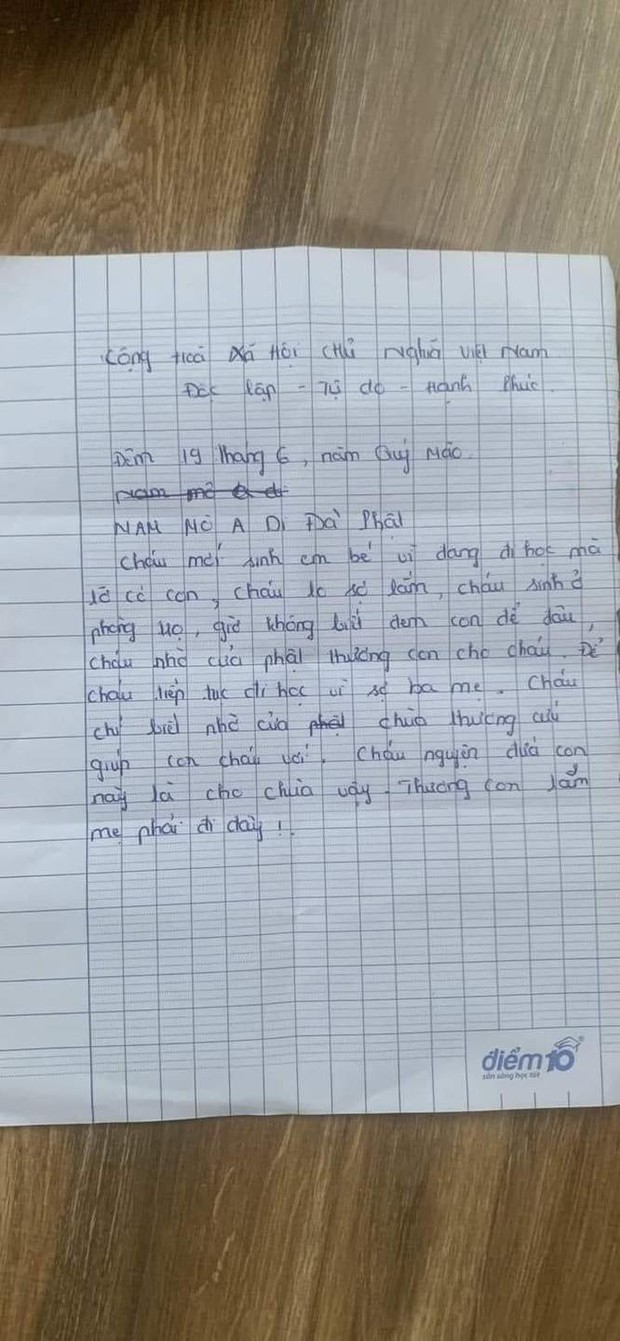 Cộng Hoà Xã Hội Chủ Nghĩa Việt Nam
Độc lập - Tự do - Hạnh Phúc.
Đêm 19 tháng 6, năm Quý Mão.
Nam mô a di
NAM MÔ A DI ĐÀ Phật
Cháu mới sinh em bé vì đang đi học mà
lỡ có con, cháu lo sợ lắm, cháu sinh ở
phòng trọ, giờ không biết đem con để đâu,
cháu nhờ cửa phật thương con cho cháu. Để
cháu tiếp tục đi học vì sợ ba mẹ. Cháu
chỉ biết nhờ cửa phật chùa thương cứu
giúp con cháu với. Cháu nguyện đứa con
này là cho chùa vậy. Thương con lắm
mẹ phải đi đây!
điểm 10
sẵn sàng học tốt